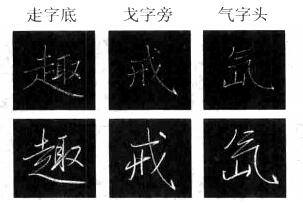 走字底 戈字旁 气字头
趣 戒 氙
趣 戒 氙